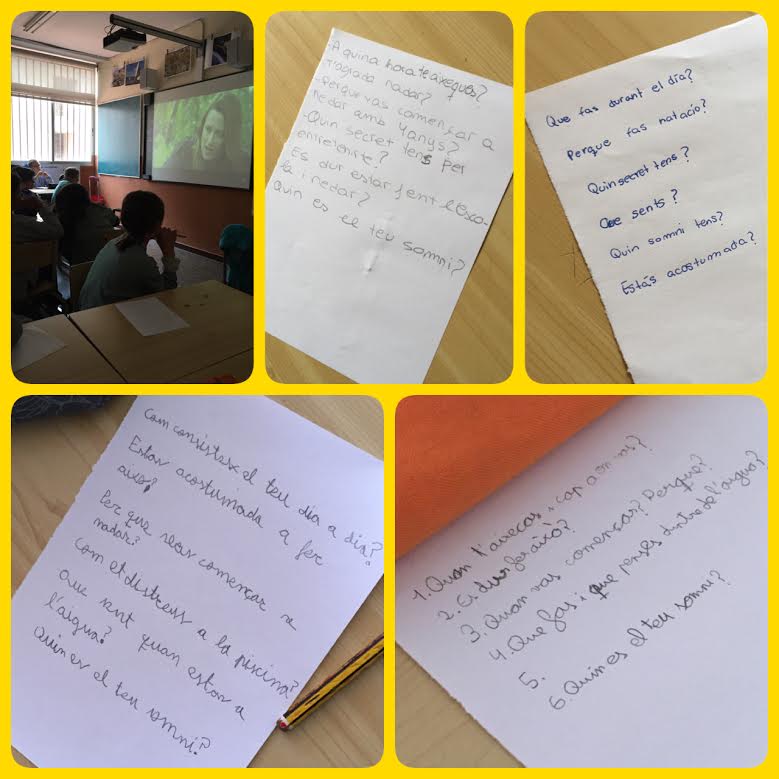 A quina hora te aixeques?
T'agrada nadar?
-Perque vas començar a
nedar amb 4 anys?
-Quin secret tens per
entretenirte?
Es dur estar fent l'esco-
la i nedar?
Quin es el teu somni?
Que fas durant el día?
Perque fas natacio?
Quin secret tens?
Que sents?
Quin somni tens?
Estás acostumada?
Com consistex el teu dia a dia?
Estar acostumada a fer
aixo?
Per que vas començar a
nadar?
Com et distreus a la piscina?
Que sent quan estar a
l'aigua?
Quin es el teu somni?
1. Quan t'aixecas i cap a on vas?
2. Es dur fer aixó?
3. Quan vas començar? Perque?
4. Que fas i que penses dintre de l'aigua?
5.
6. Quin es el teu somni?